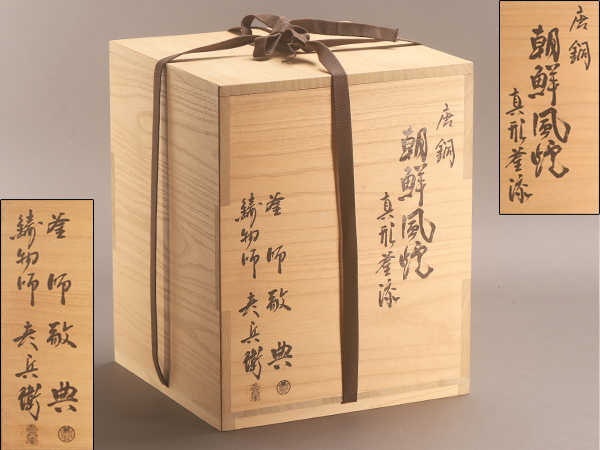 唐銅
朝鮮風炉
真形釜添
釜師 敬典
鋳物師 彦兵衛
唐銅
朝鮮風炉
真形釜添
釜師 敬典
鋳物師 彦兵衛